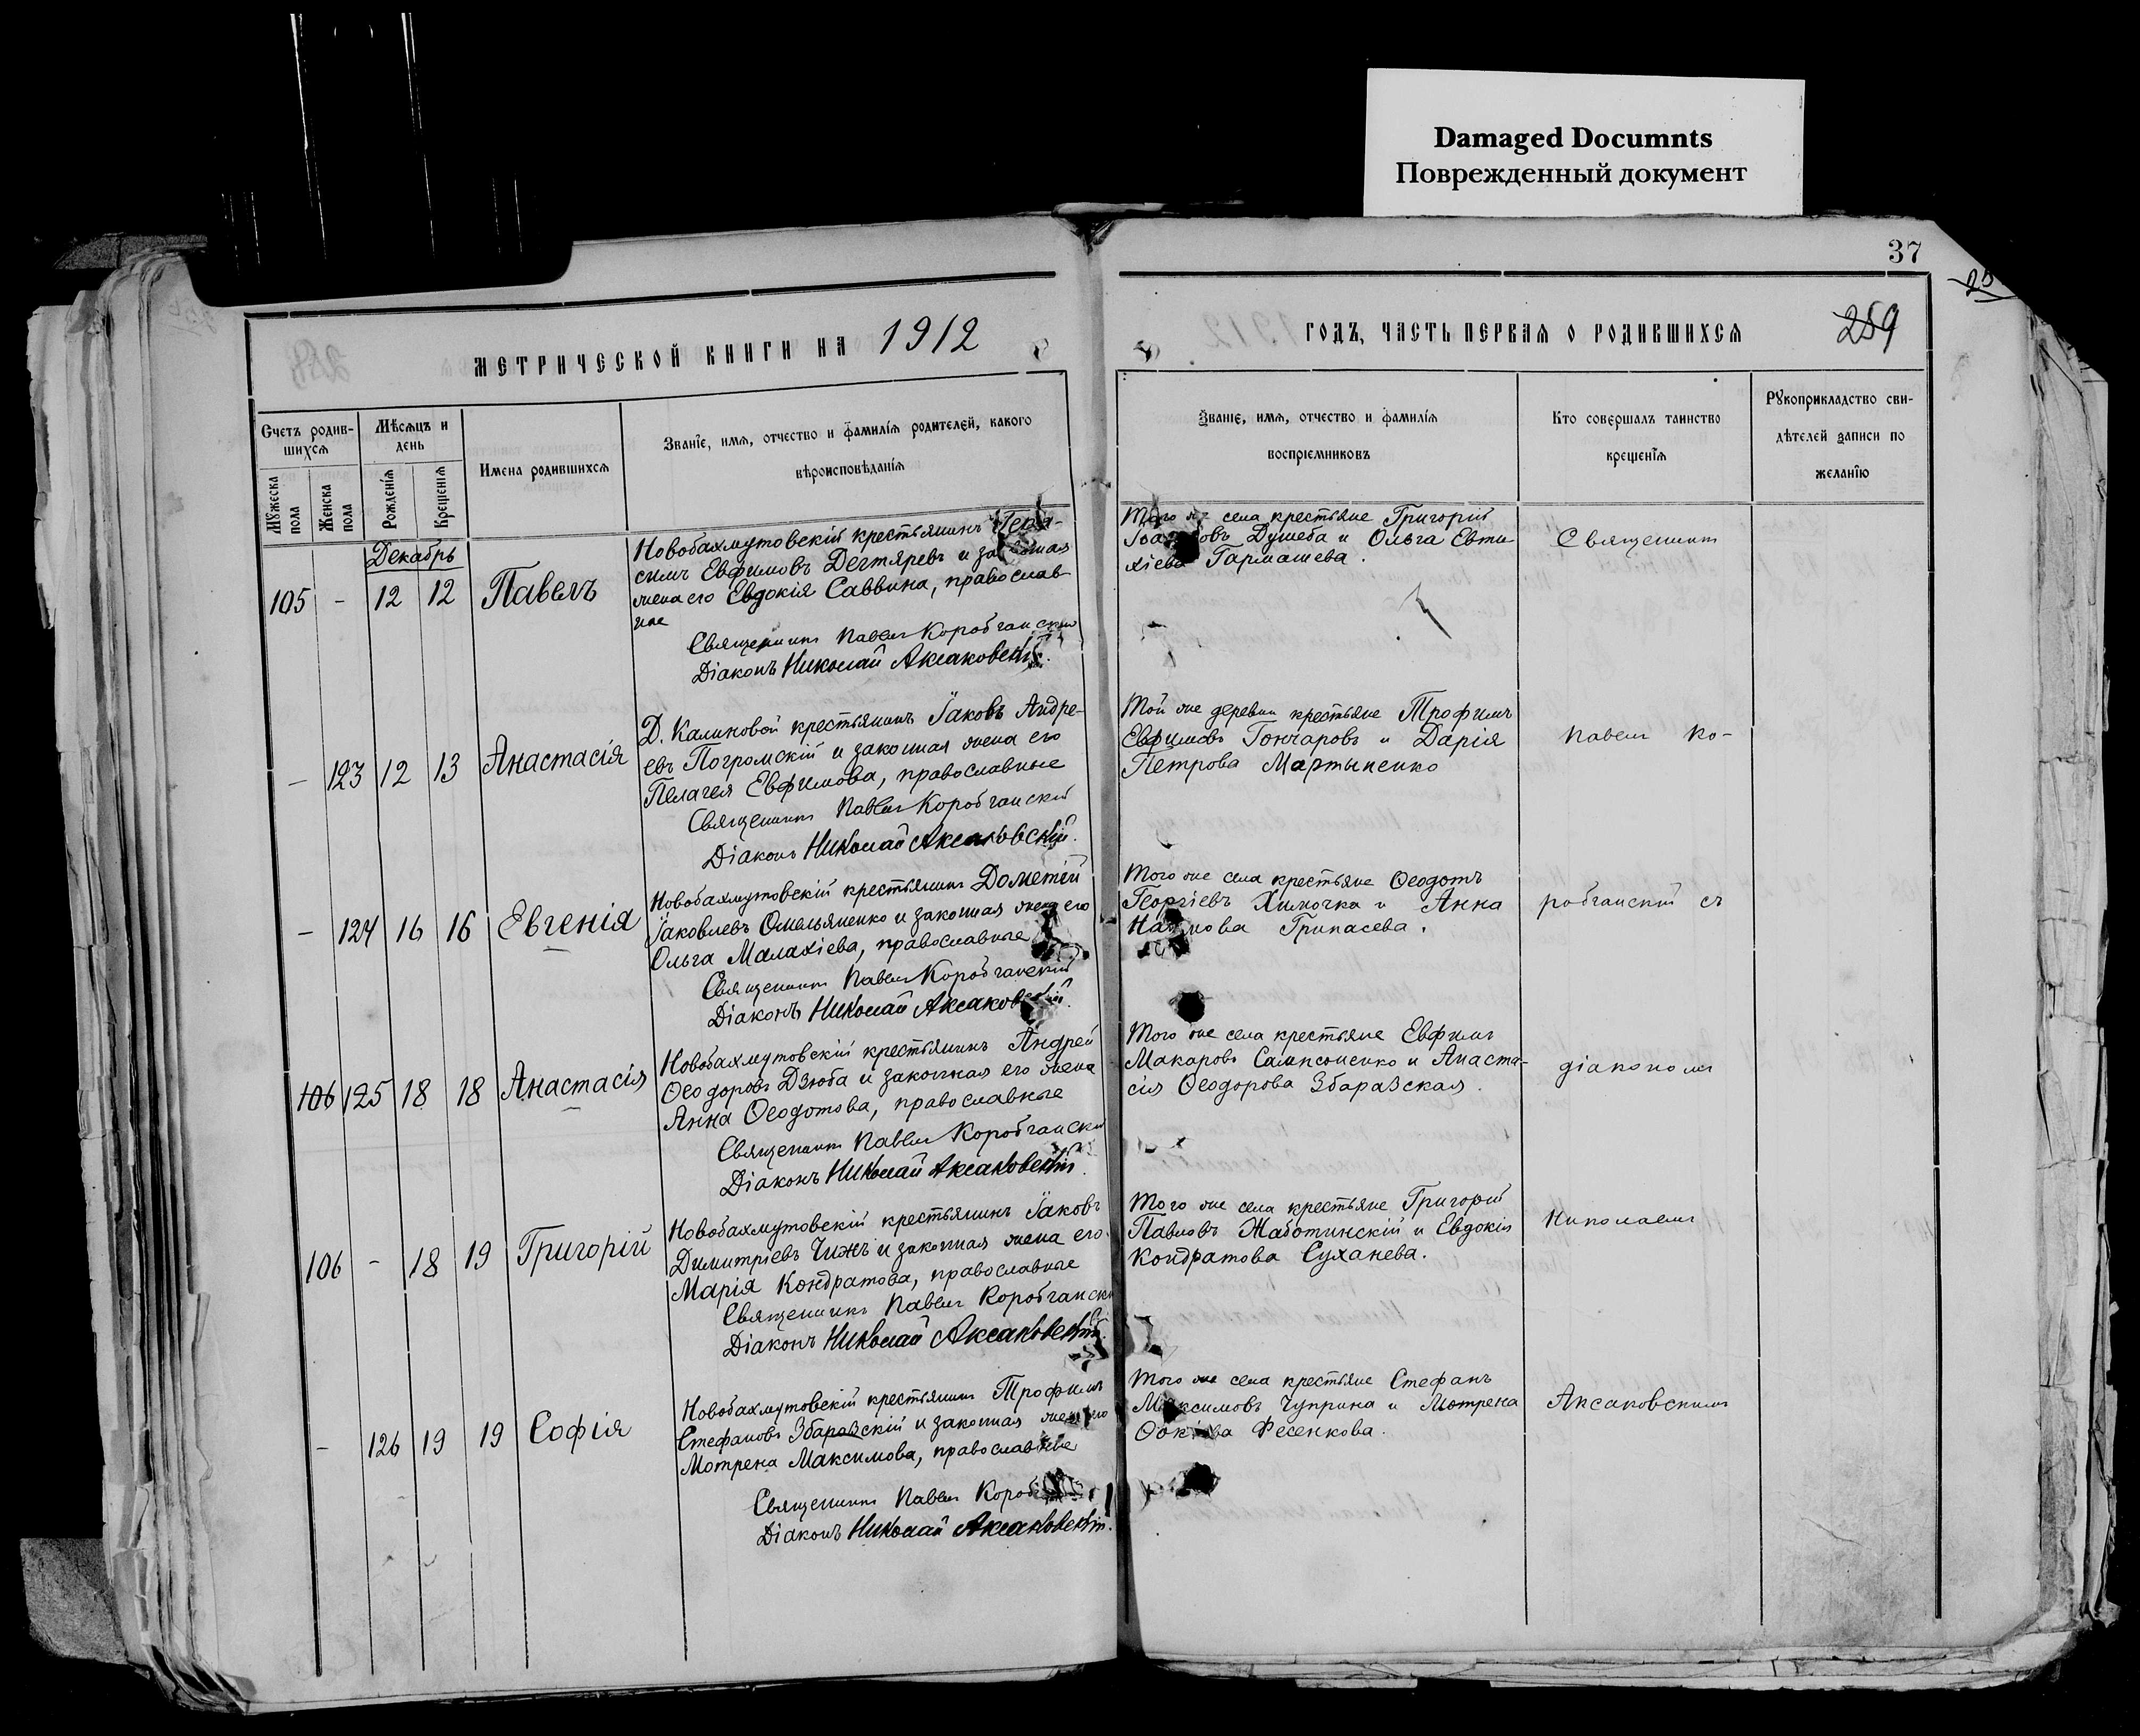 Damaged Documnts
Поврежденный документ
37
метрической книги на 1912
Счетъ родив-
шихся
Мѣсяцъ и
день
Имена родившихся
Званіе, имя, отчество и фамилія родителей, какого
вѣроисповѣданія
Мужеска
пола
Женска
пола
Рожденія
Крещенія
Декабрь
105 - 12 12 Павелъ
Новобахмутовскій крестьянинъ
симъ Евфимовъ Дегтяревъ и законная
жена его Евдокія Саввина, православ
ные
Священникъ Павелъ Коробчанскій
Діаконъ Николай Аксаковскій.
- 123 12 13 Анастасія
Д. Калиновой крестьянинъ Іаковъ Андре-
евъ Погромскій и законная жена его
Пелагея Евфимова, православные
Священникъ Павелъ Коробчанскій
Діаконъ Николай Аксаковскій.
- 124 16 16 Евгенія
Новобахмутовскій крестьянинъ Дометій
Іаковлевъ Омельяненко и законная жена его
Ольга Малахіева, православные
Священникъ Павелъ Коробчанскій
Діаконъ Николай Аксаковскій.
106 125 18 18 Анастасія
Новобахмутовскій крестьянинъ Андрей
Ѳеодоровъ Дзюба и законная его жена
Анна Ѳеодотова, православные
Священникъ Павелъ Коробчанскій
Діаконъ Николай Аксаковскій.
106 - 18 19 Григорій
Новобахмутовскій крестьянинъ Іаковъ
Димитріевъ Чижъ и законная жена его
Марія Кондратова, православные
Священникъ Павелъ Коробчанскій
Діаконъ Николай Аксаковскій.
- 126 19 19 Софія
Новобахмутовскій крестьянинъ Трофимъ
Стефановъ Збаразскій и законная жена его
Мотрена Максимова, православные
Священникъ Павелъ
Діаконъ Николай Аксаковскій.
годъ, часть первая о родившихся 259
Званіе, имя, отчество и фамилія
воспріемниковъ
Кто совершалъ таинство
крещенія
Рукоприкладство сви-
дѣтелей записи по
желанію
Того же села крестьяне Григорій
Душеба и Ольга Евти
хіева Гармашева.
Священникъ
Той же деревни крестьяне Трофимъ
Евфимовъ Гончаровъ и Дарія
Петрова Мартыненко
Павелъ Ко-
Того же села крестьяне Ѳеодотъ
Георгіевъ Химочка и Анна
Грипасева.
робчанскій съ
Того же села крестьяне Евфимъ
Макаровъ Сампсоненко и Анаста-
сія Ѳеодорова Збаразская.
діакономъ
Того же села крестьяне Григорій
Павловъ Жаботинскій и Евдокія
Кондратова Суханева.
Николаемъ
Того же села крестьяне Стефанъ
Максимовъ Чуприна и Мотрена
Фесенкова.
Аксаковскимъ